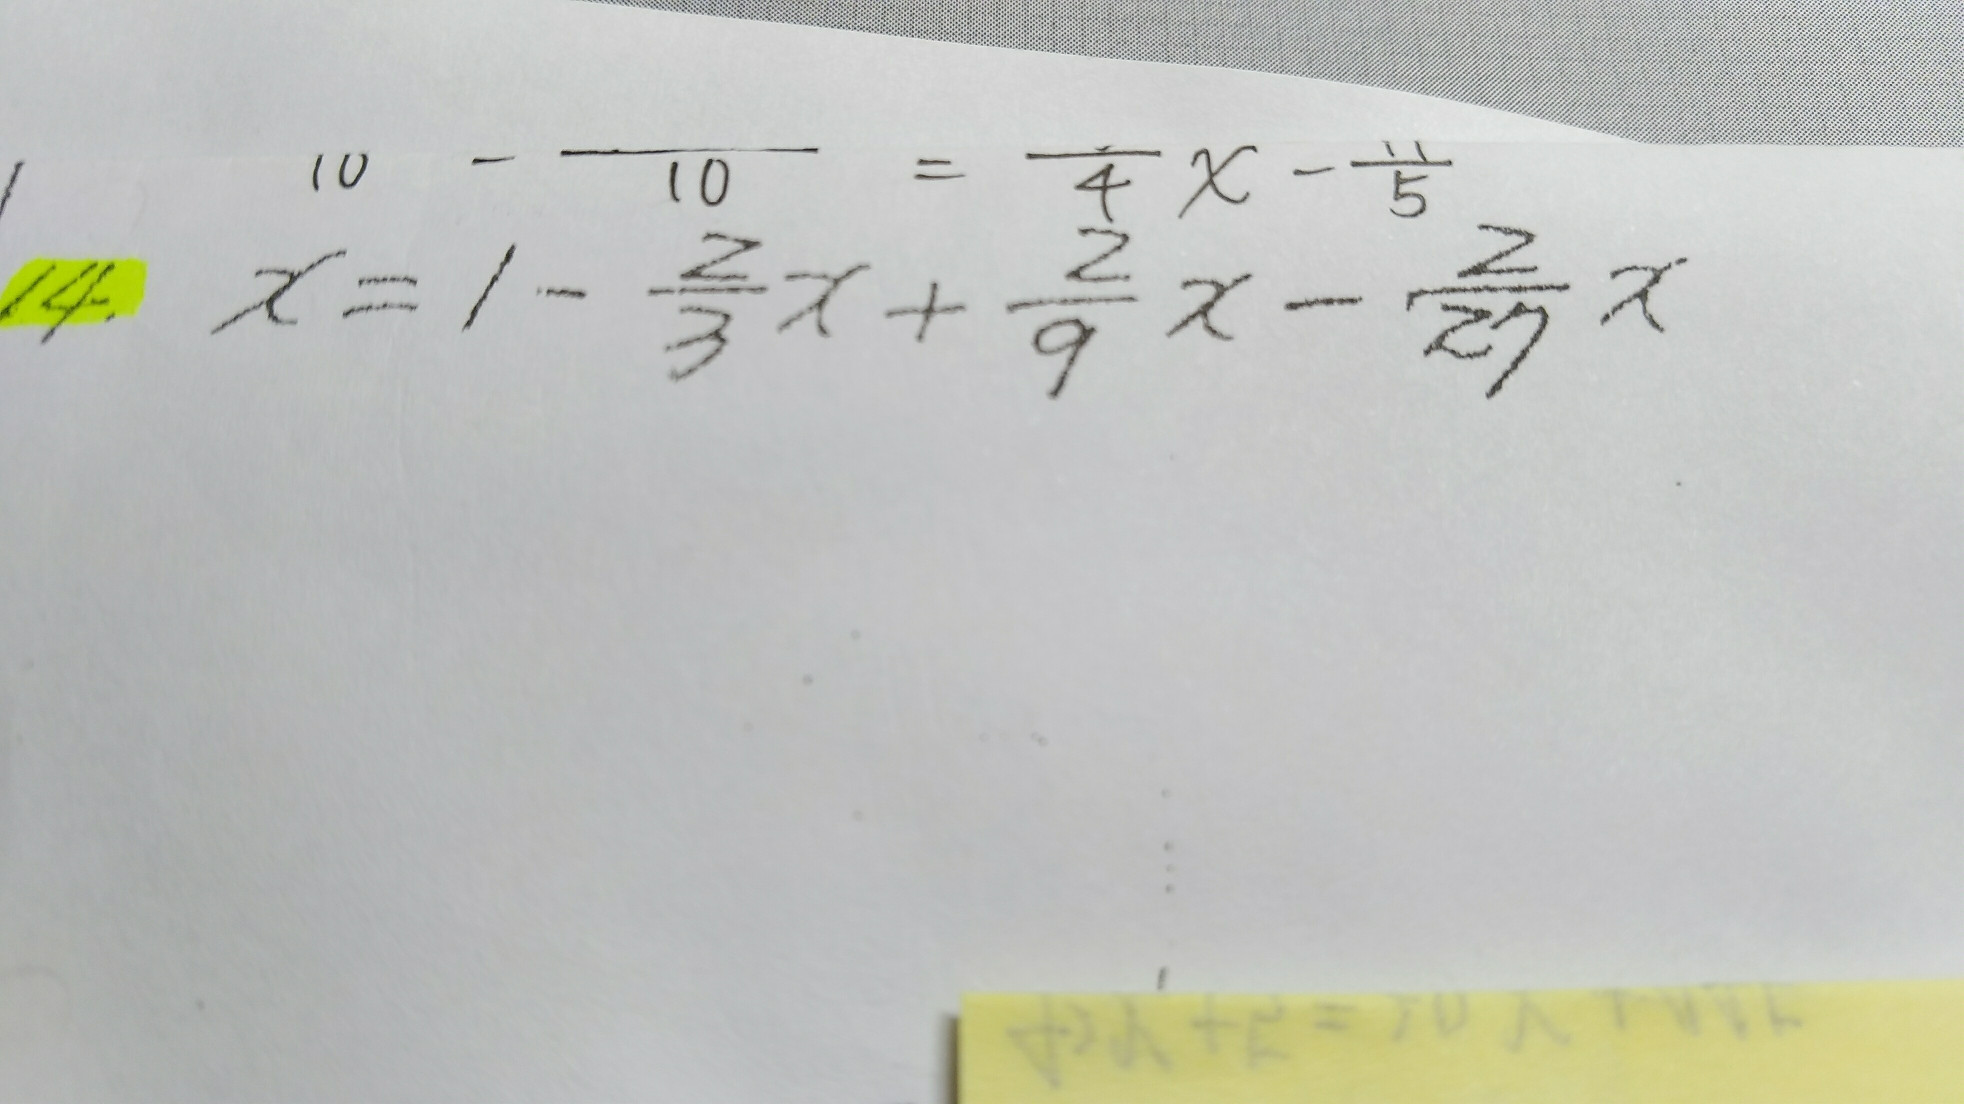 10 - /10 = /4 x - 11/5
14. x = 1 - 2/3 x + 2/9 x - 2/27 x